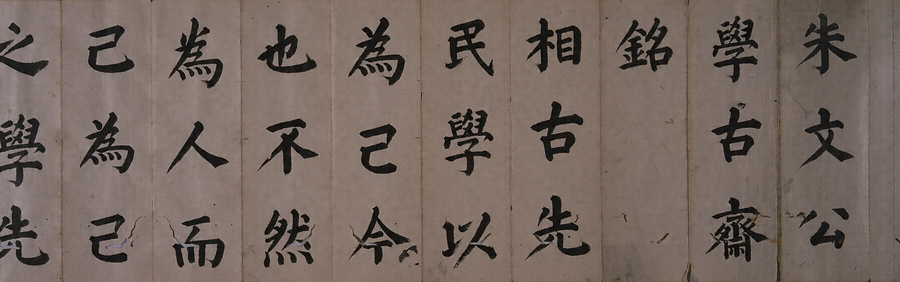 朱文公
學古齋
銘
相古先
民學以
為己今
也不然
為人而
己為己
之學先